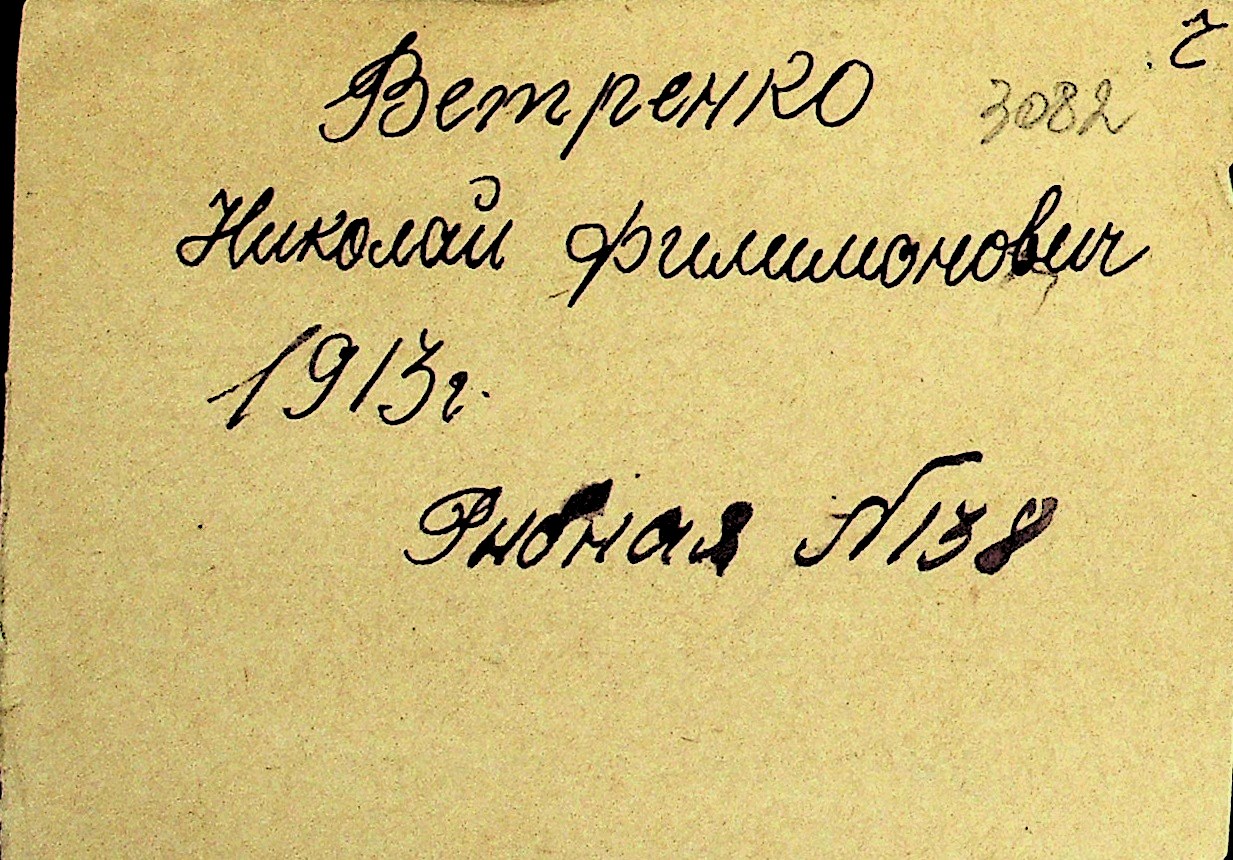 Ветренко 3082
Николай Филимонович
1913г.
Ривная №138